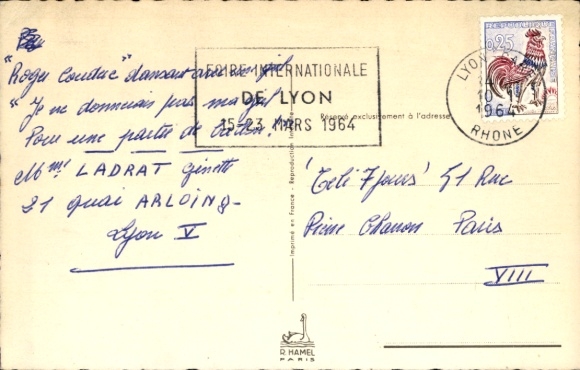 "Roger
"Je ne donnerais pas ma
Pour une partie de
Mme LADRAT Ginette
21 quai ARLOING-
Lyon V
FOIRE INTERNATIONALE
DE LYON
15-23 MARS 1964
Réservé exclusivement à l'adresse
0,25
LYON
10
1964
RHONE
Imprimé en France - Reproduction
'Télé 7 Jours' 51 Rue
Pierre Charron Paris
VIII
R. HAMEL
PARIS